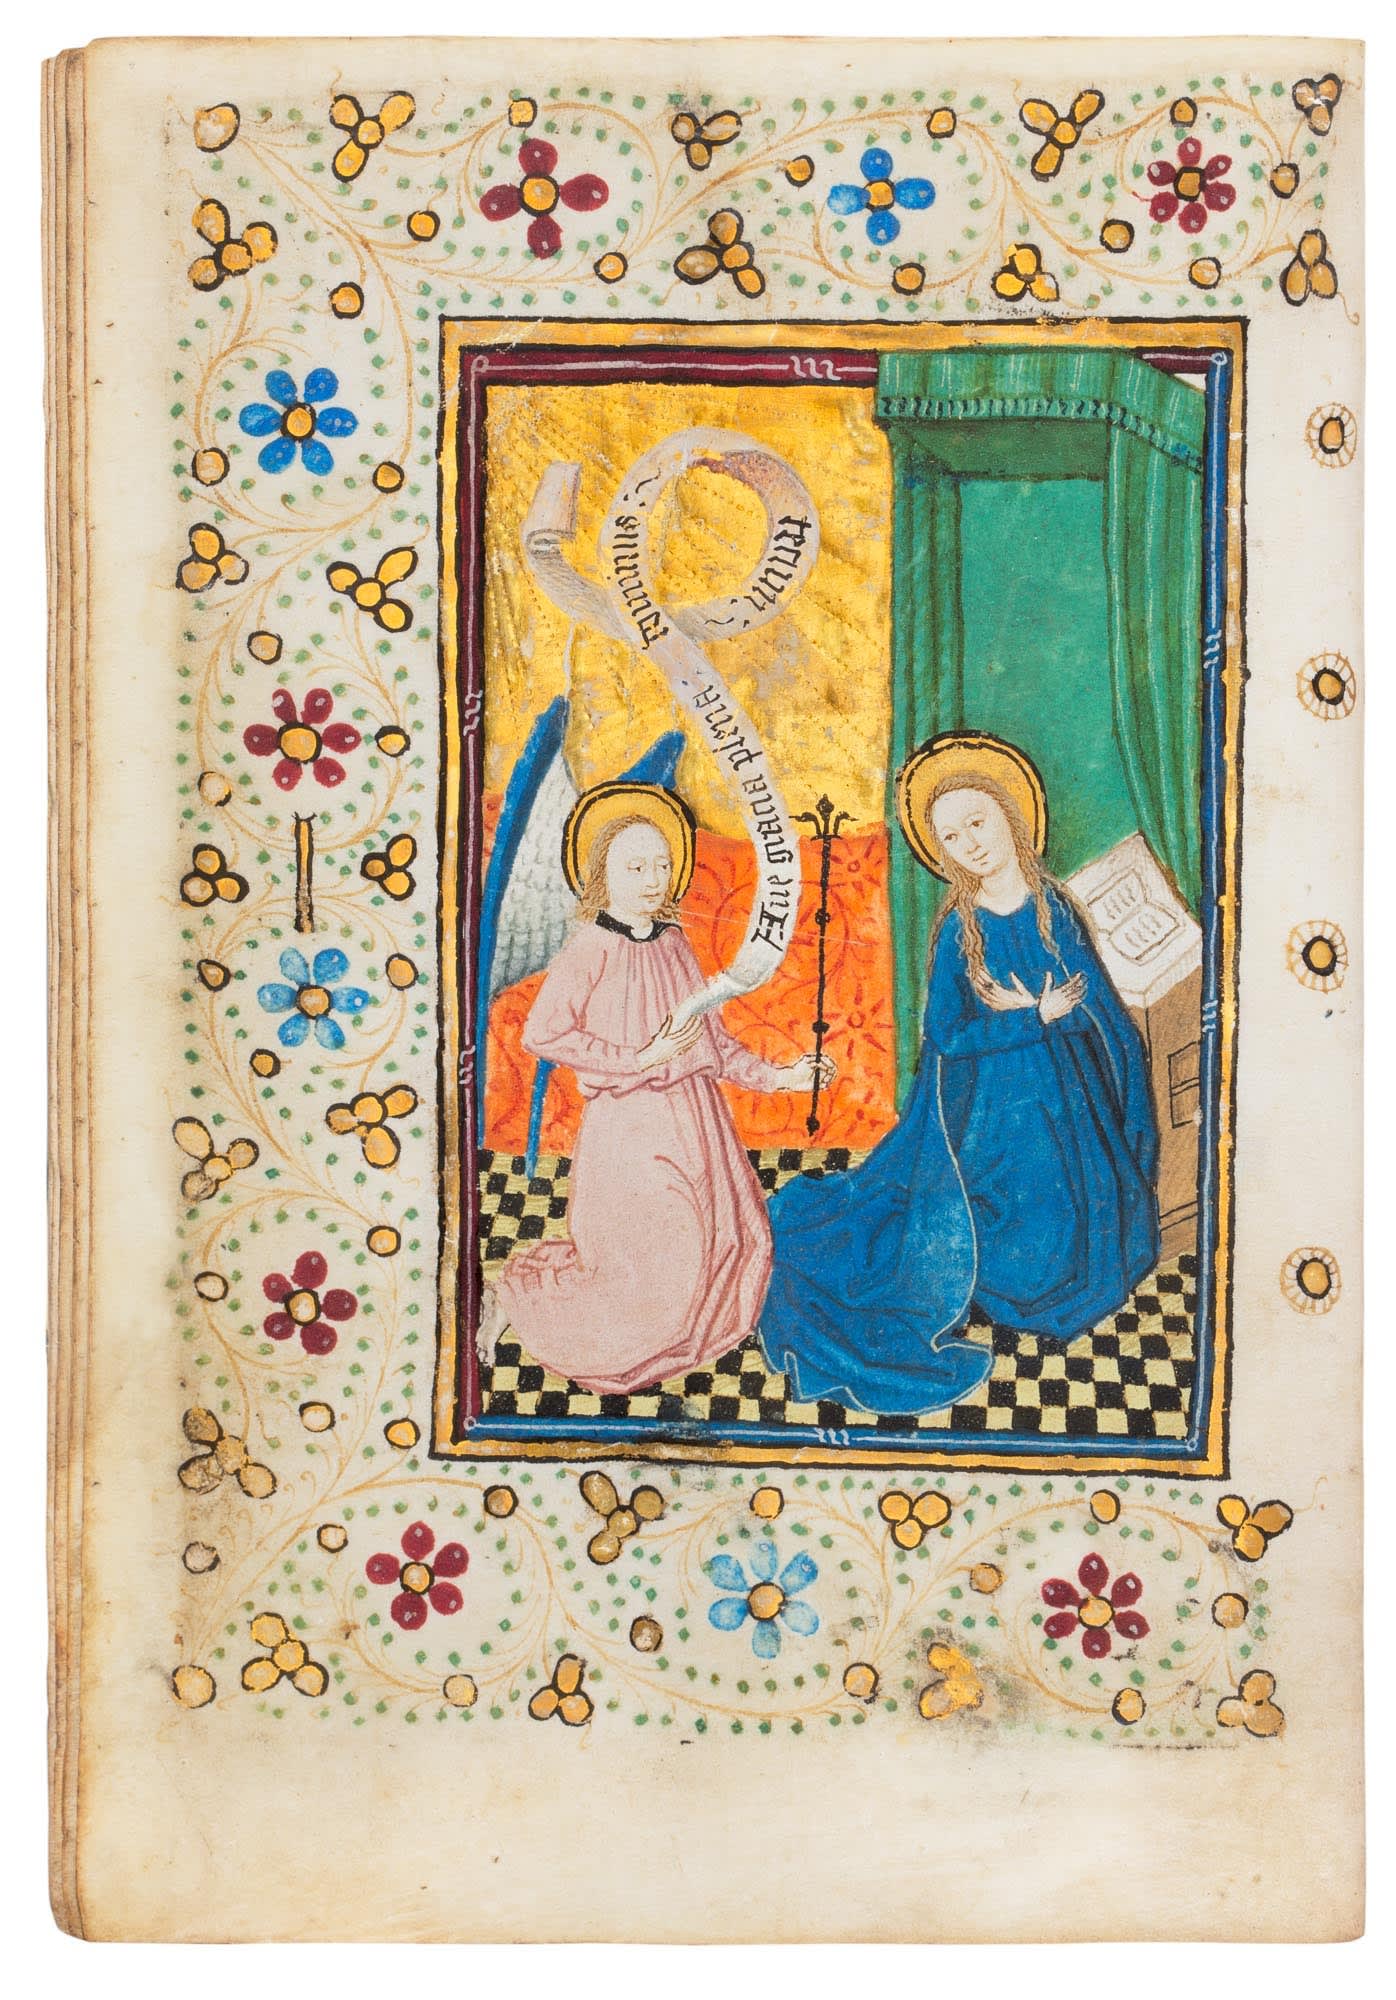 Aue gracia plena
Dominus
tecum